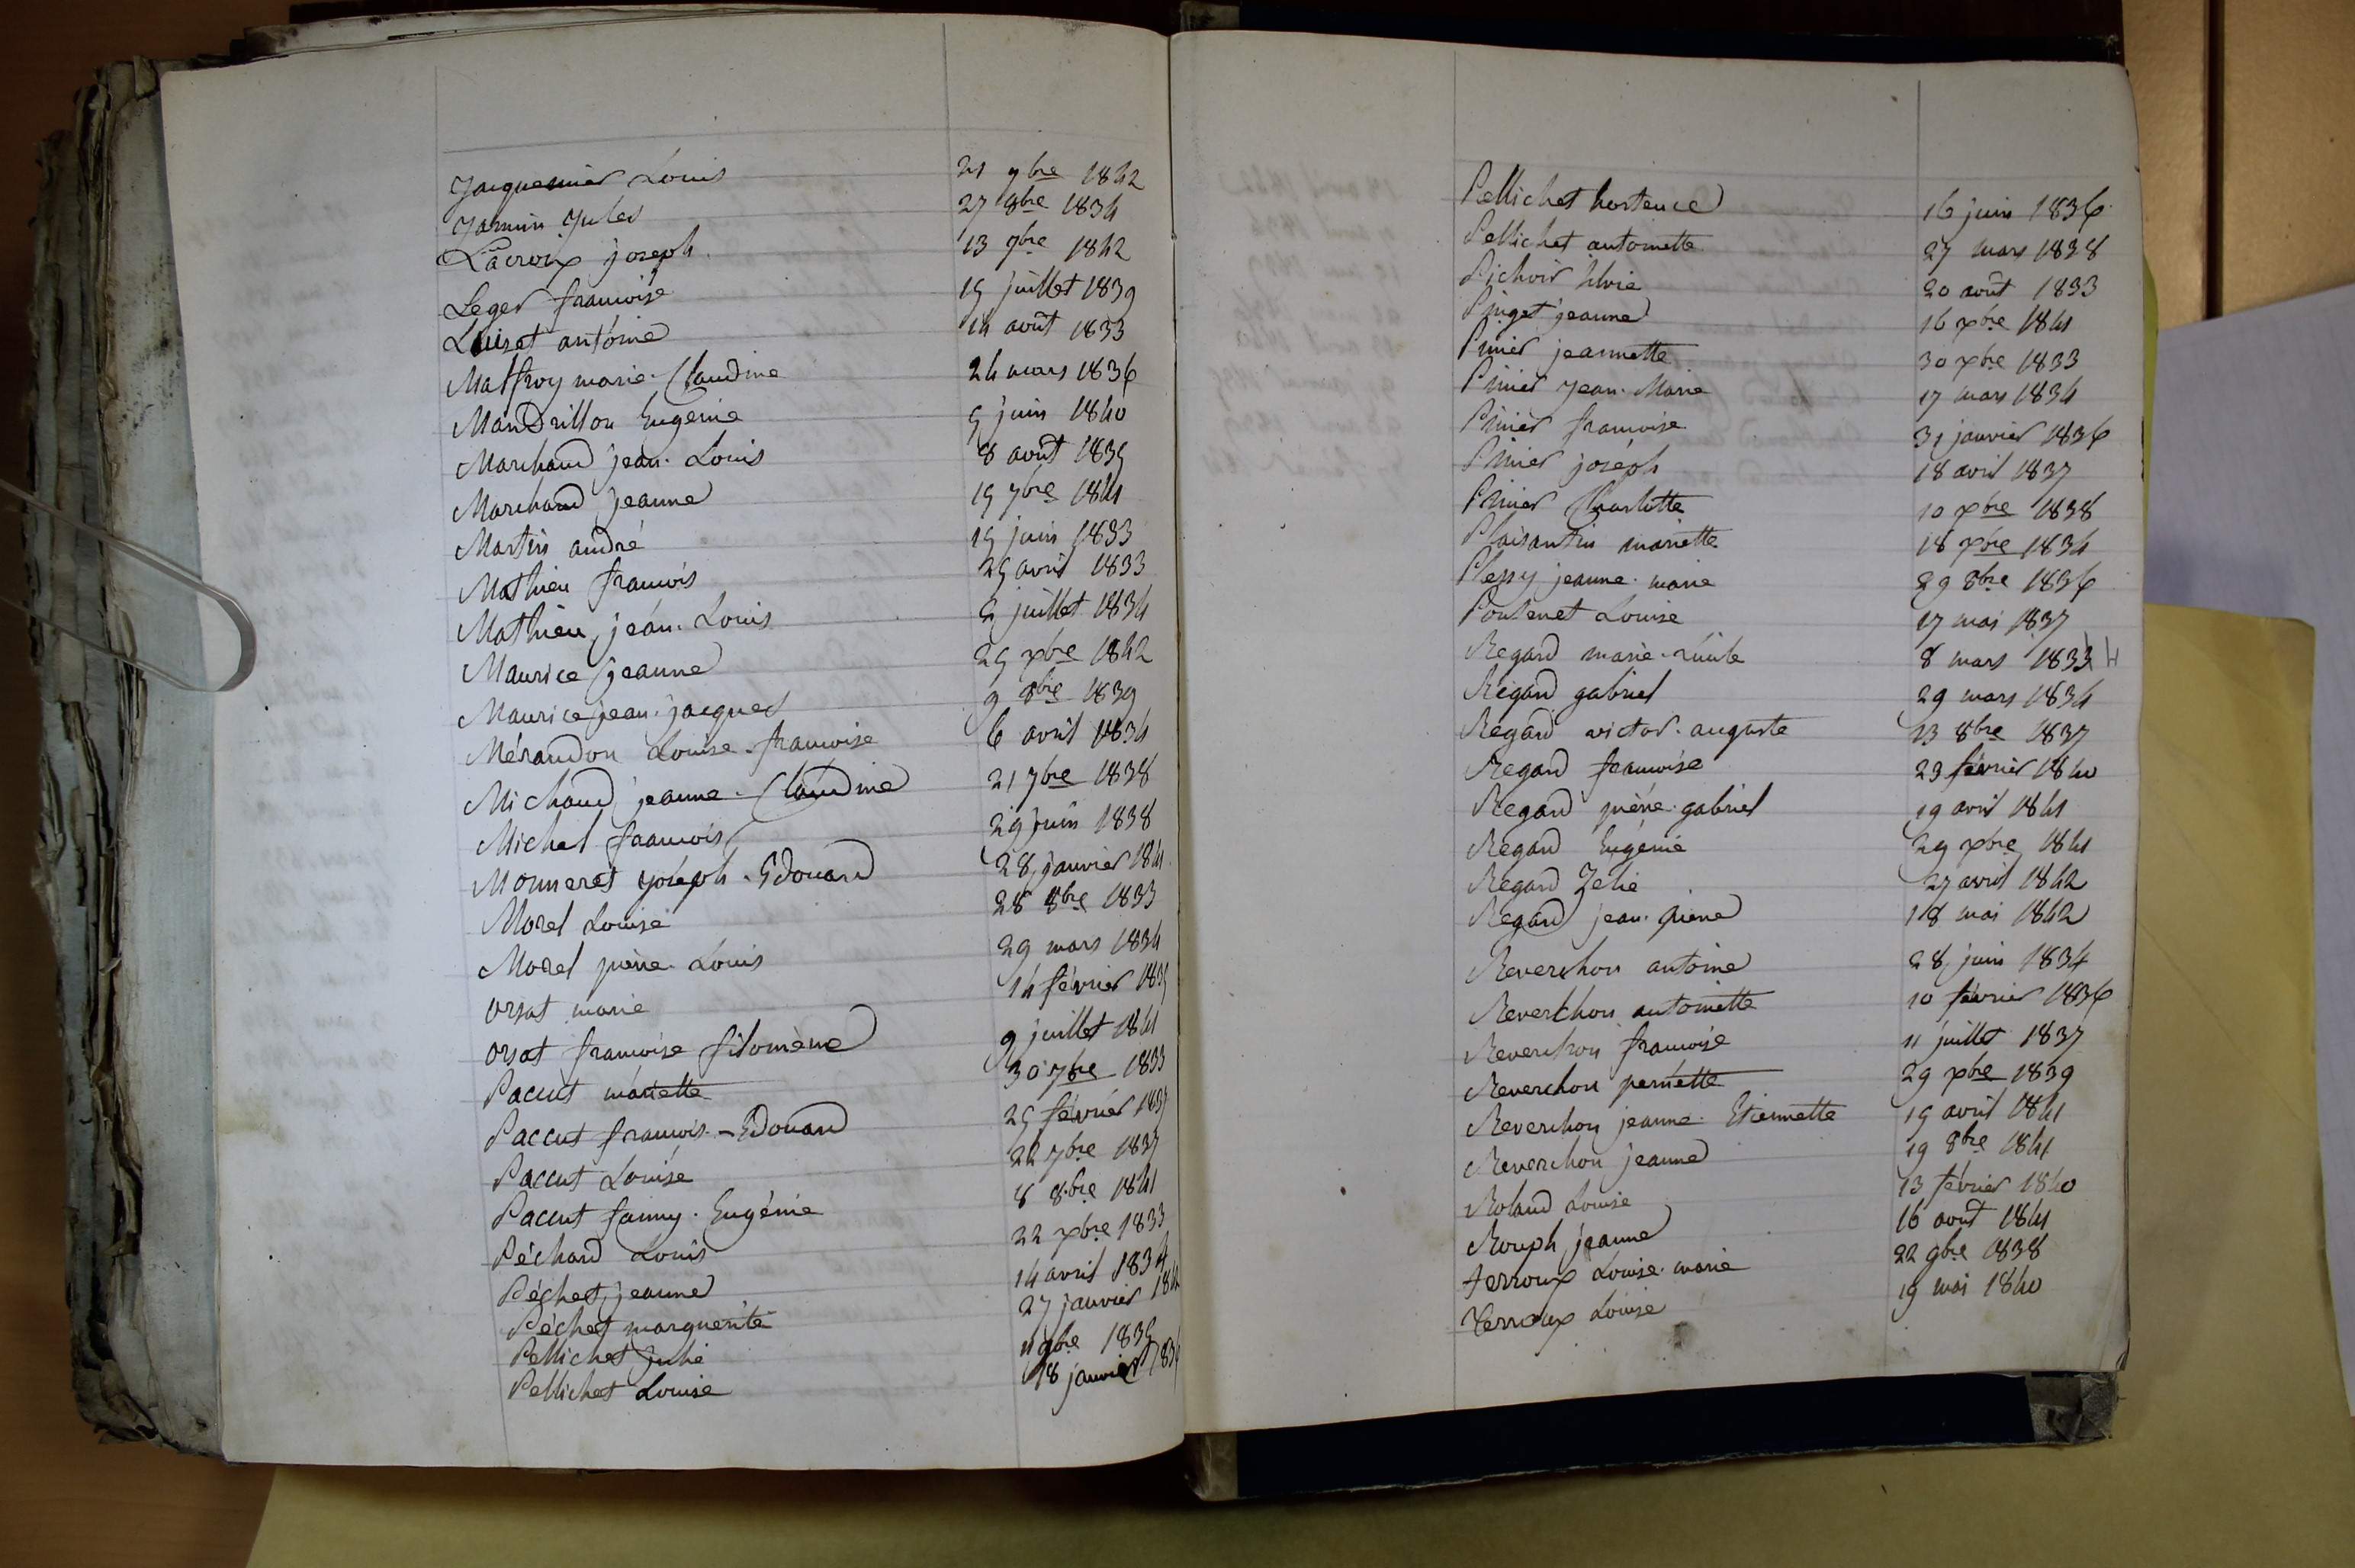 Jacquemier Louis 21 9bre 1842
Jarmin Jules 27 8bre 1834
Lacroix joseph 13 7bre 1842
Leger françoise 15 juillet 1839
Luiset antoine 14 août 1833
Maffroy marie-Claudine 24 mars 1836
Mandrillon Eugenie 5 juin 1840
Marchand jean-Louis 8 août 1835
Marchand jeanne 15 7bre 1841
Martin andré 15 juin 1833
Mathieu françois 25 avril 1833
Mathieu jean-Louis 2 juillet 1834
Maurice jeanne 25 xbre 1842
Maurice jean-jacques 9 8bre 1839
Mérandon Louise-françoise 6 avril 1834
Michaud jeanne-Claudine 21 7bre 1838
Michel françois 29 juin 1838
Monneret joseph-Edouard 28 janvier 1841
Morel Louise 28 8bre 1833
Morel pierre-Louis 29 mars 1834
Orsat marie 14 février 1835
Orsat françoise filomène 9 juillet 1841
Paccut mariette 30 7bre 1833
Paccut françois-Edouard 25 février 1835
Paccut Louise 22 7bre 1837
Paccut fanny-Eugénie 8 8bre 1841
Péchard Louis 22 xbre 1833
Péchet jeanne 14 avril 1834
Péchet marguerite 27 janvier 184
Pellichet Julie 11 9bre 1835
Pellichet Louise 18 janvier 183
Pellichet hortence 16 juin 1836
Pellichet antoinette 27 mars 1838
Pichoir silvie 20 août 1833
Pinget jeanne 16 xbre 1841
Pinier jeannette 30 xbre 1833
Pinier Jean-Marie 17 mars 1834
Pinier françoise 31 janvier 1836
Pinier joséph 18 avril 1837
Pinier Charlotte 10 xbre 1838
Plaisantin mariette 18 xbre 1834
Plessy jeanne-marie 29 8bre 1836
Pontenet Louise 17 mai 1837
Regard marie 8 mars 1833
Regard gabriel 29 mars 1834
Regard victor-auguste 13 8bre 1837
Regard françoise 23 février 1840
Regard pierre-gabriel 19 avril 1841
Regard Eugénie 29 xbre 1841
Regard Zelie 27 avril 1842
Regard jean-pierre 18 mai 1842
Reverchon antoine 28 juin 1834
Reverchon antoinette 10 février 1836
Reverchon françoise 11 juillet 1837
Reverchon pernette 29 xbre 1839
Reverchon jeanne-Etiennette 15 avril 1841
Reverchon jeanne 19 8bre 1841
Roland Louise 13 février 1840
Rouph jeanne 16 août 1841
terroux Louise-marie 22 9bre 1838
Terroux Louise 19 mai 1840